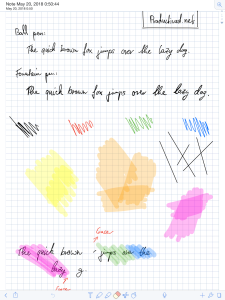 Note May 20, 2018 0:50:44
May 20, 2018 0:50
Productived.net
Ball pen:
The quick brown fox jumps over the lazy dog.
Fountain pen:
The quick brown fox jumps over the lazy dog.
The quick brown jumps over the
lazy g.